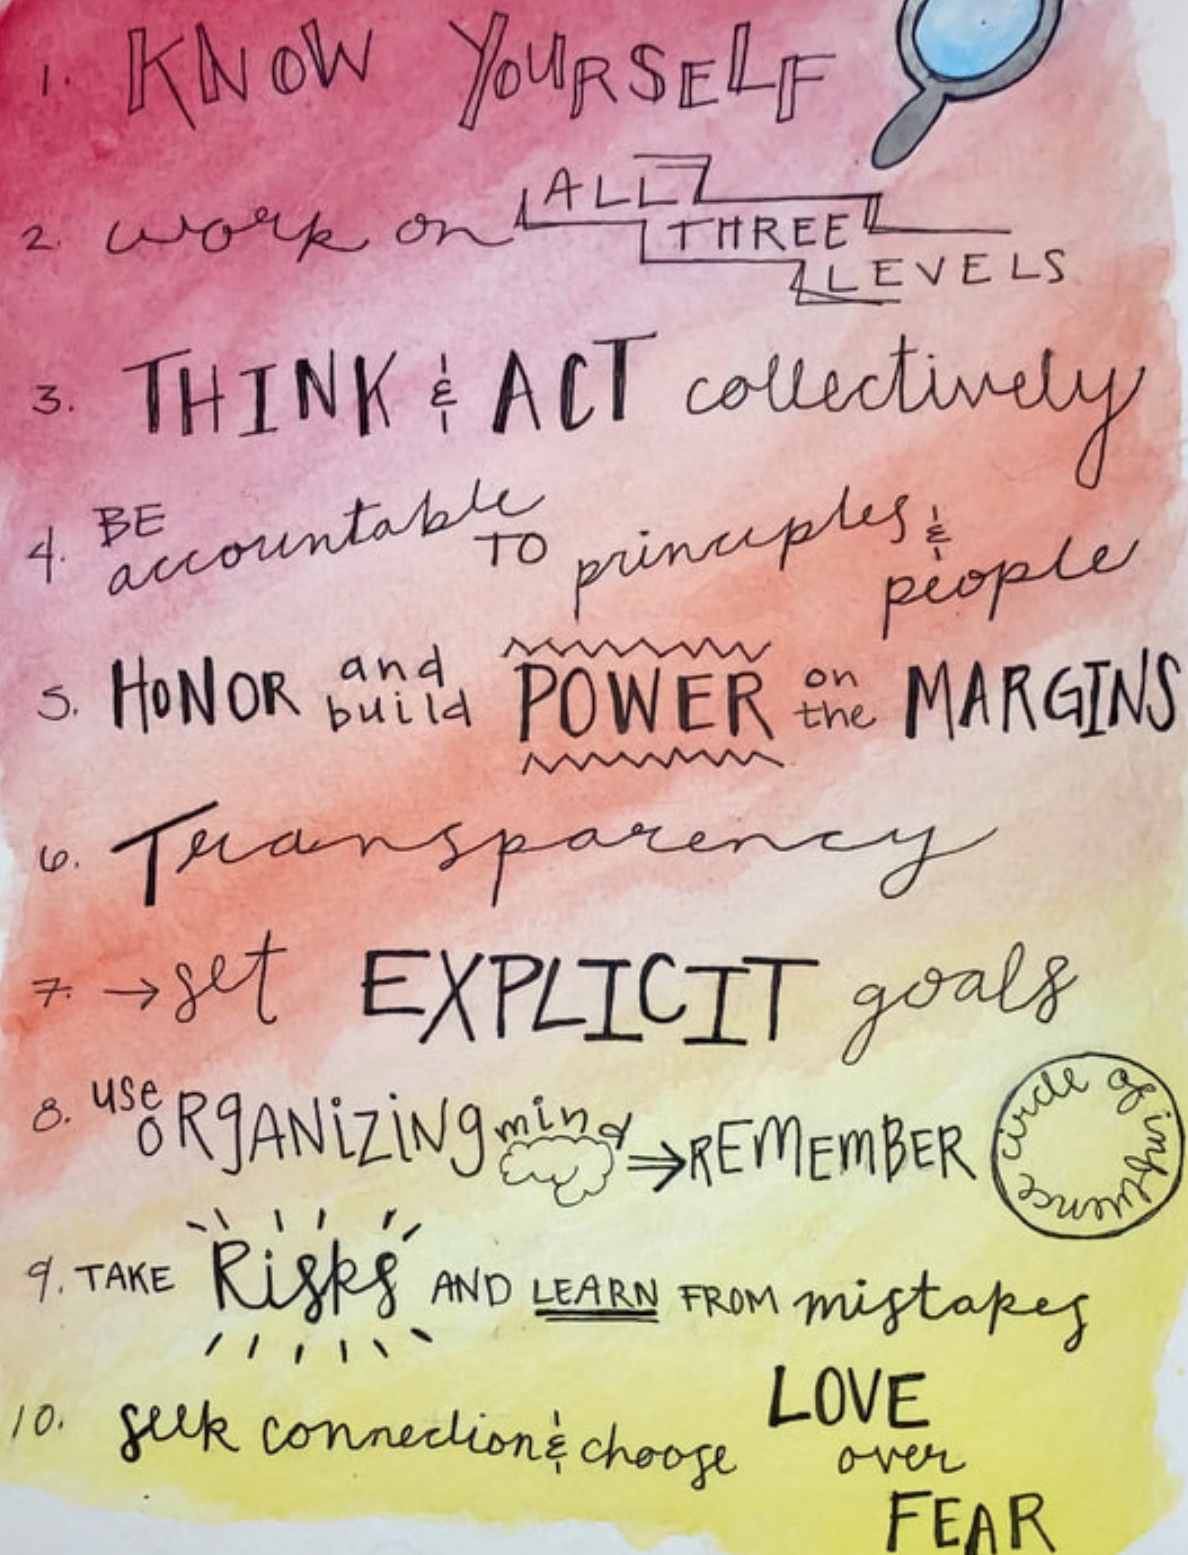 1. KNOW YOURSELF
2. work on ALL THREE LEVELS
3. THINK & ACT collectively
4. BE accountable TO principles & people
5. HONOR and build POWER on the MARGINS
6. Transparency
7. → set EXPLICIT goals
8. use ORgANiZiNg mind ⇒ REMEMBER circle of influence
9. TAKE Risks AND LEARN FROM mistakes
10. seek connection & choose LOVE over FEAR